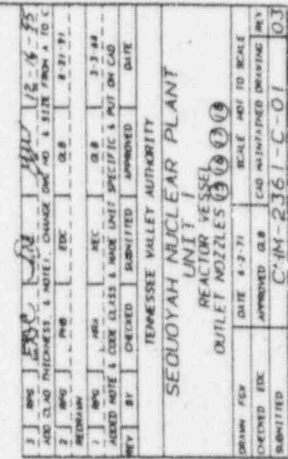 3 RPG 12-16-95
ADD CLAD THICKNESS, & NOTE 1, CHANGE DWG NO & SIZE FROM A TO C
2 RPG PHB EDC GLB 8-21-91
REDRAWN
1 RPG MRA MEC GLB 3-3-88
ADDED NOTE & CODE CLASS & MADE UNIT SPECIFIC & PUT ON CAD
REV BY CHECKED SUBMITTED APPROVED DATE
TENNESSEE VALLEY AUTHORITY
SEQUOYAH NUCLEAR PLANT
UNIT 1
REACTOR VESSEL
OUTLET NOZZLES 15 16 17 18
DRAWN FGH DATE 6-2-71 SCALE NOT TO SCALE
CHECKED EDC APPROVED GLB CAD MAINTAINED DRAWING REV
SUBMITTED CHM-2361-C-01 03